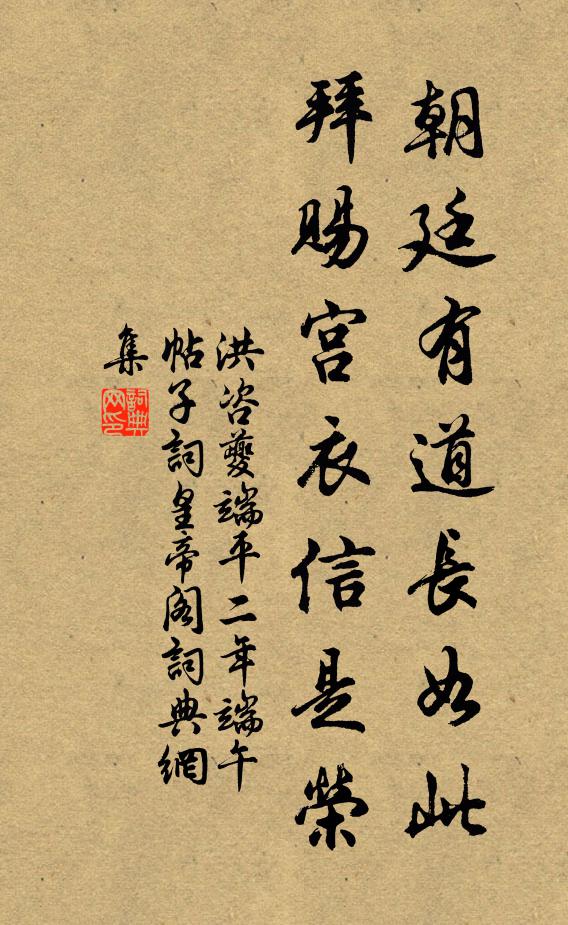 朝廷有道長如此
拜賜宮衣信是榮
洪咨夔端平二年端午
帖子詞皇帝閣詞典網
集
詞典
网印